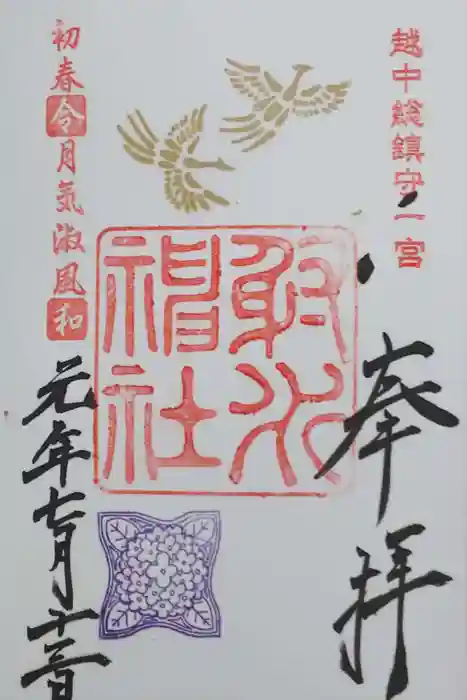 越中総鎮守一宮
奉拝
射水
神社
初春令月気淑風和
元年七月十三日